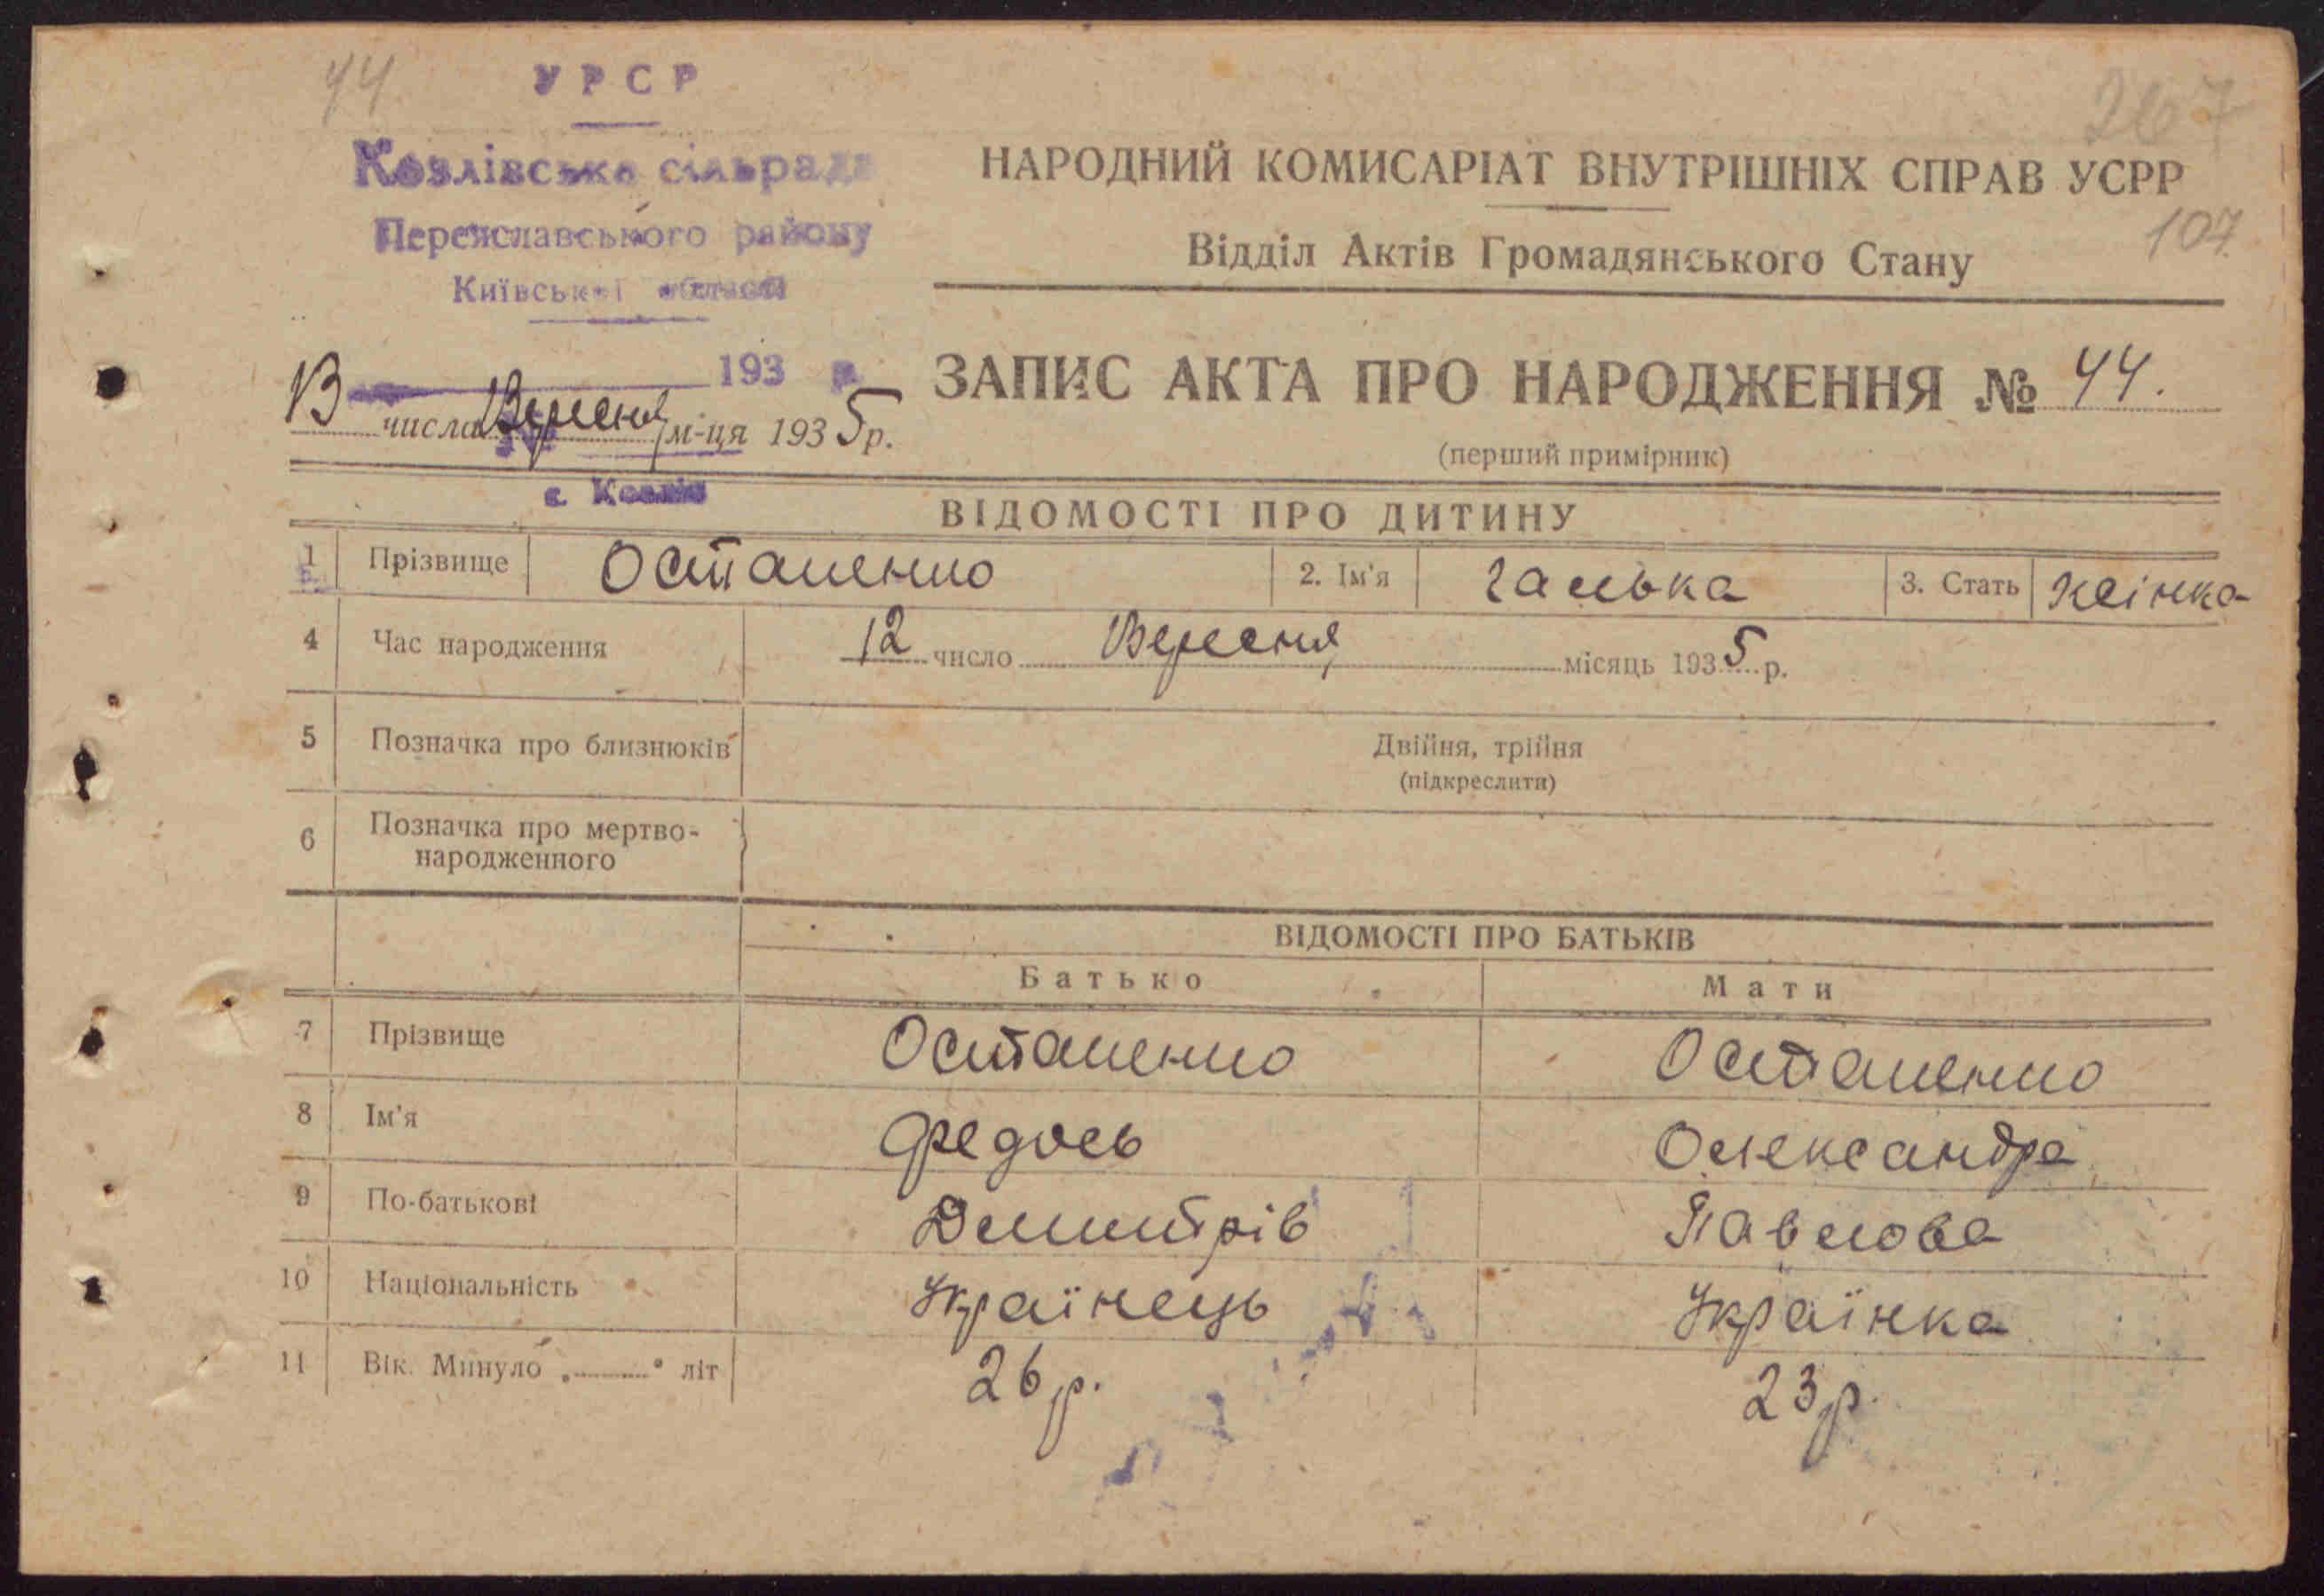 44
УРСР
267
Козлівська сільрада
НАРОДНИЙ КОМИСАРІАТ ВНУТРІШНІХ СПРАВ УСРР
Переяславського району
107
Відділ Актів Громадянського Стану
Київської області
193 р.
13 числа Вересня м-ця 1935 р.
ЗАПИС АКТА ПРО НАРОДЖЕННЯ № 44.
(перший примірник)
с Козлів
ВІДОМОСТІ ПРО ДИТИНУ
1 Прізвище Остапенко 2. Ім'я Галька 3. Стать Жінка
4 Час народження 12 число Вересня місяць 1935 р.
5 Позначка про близнюків Двійня, трійня
(підкреслити)
6 Позначка про мертво-
народженного
ВІДОМОСТІ ПРО БАТЬКІВ
Батько Мати
7 Прізвище Остапенко Остапенко
8 Ім'я Федось Олександра
9 По-батькові Демитрів Павлова
10 Національність Українець Українка
11 Вік. Минуло „.........“ літ 26 р. 23 р.